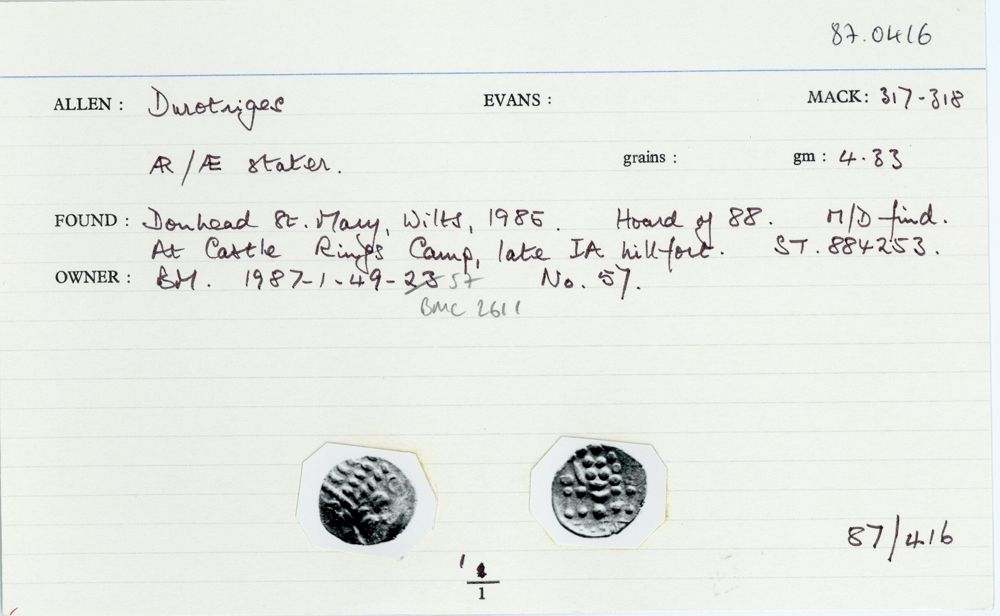 87.0416
ALLEN : Durotriges EVANS : MACK: 317-318
ÆR/Æ stater. grains : gm : 4.33
FOUND : Donhead St. Mary, Wilts, 1985. Hoard of 88. M/D find.
At Castle Rings Camp, late IA hillfort. ST.884253.
OWNER : BM. 1987-1-49-23 57 No. 57.
BMC 2611
87/416
1
1